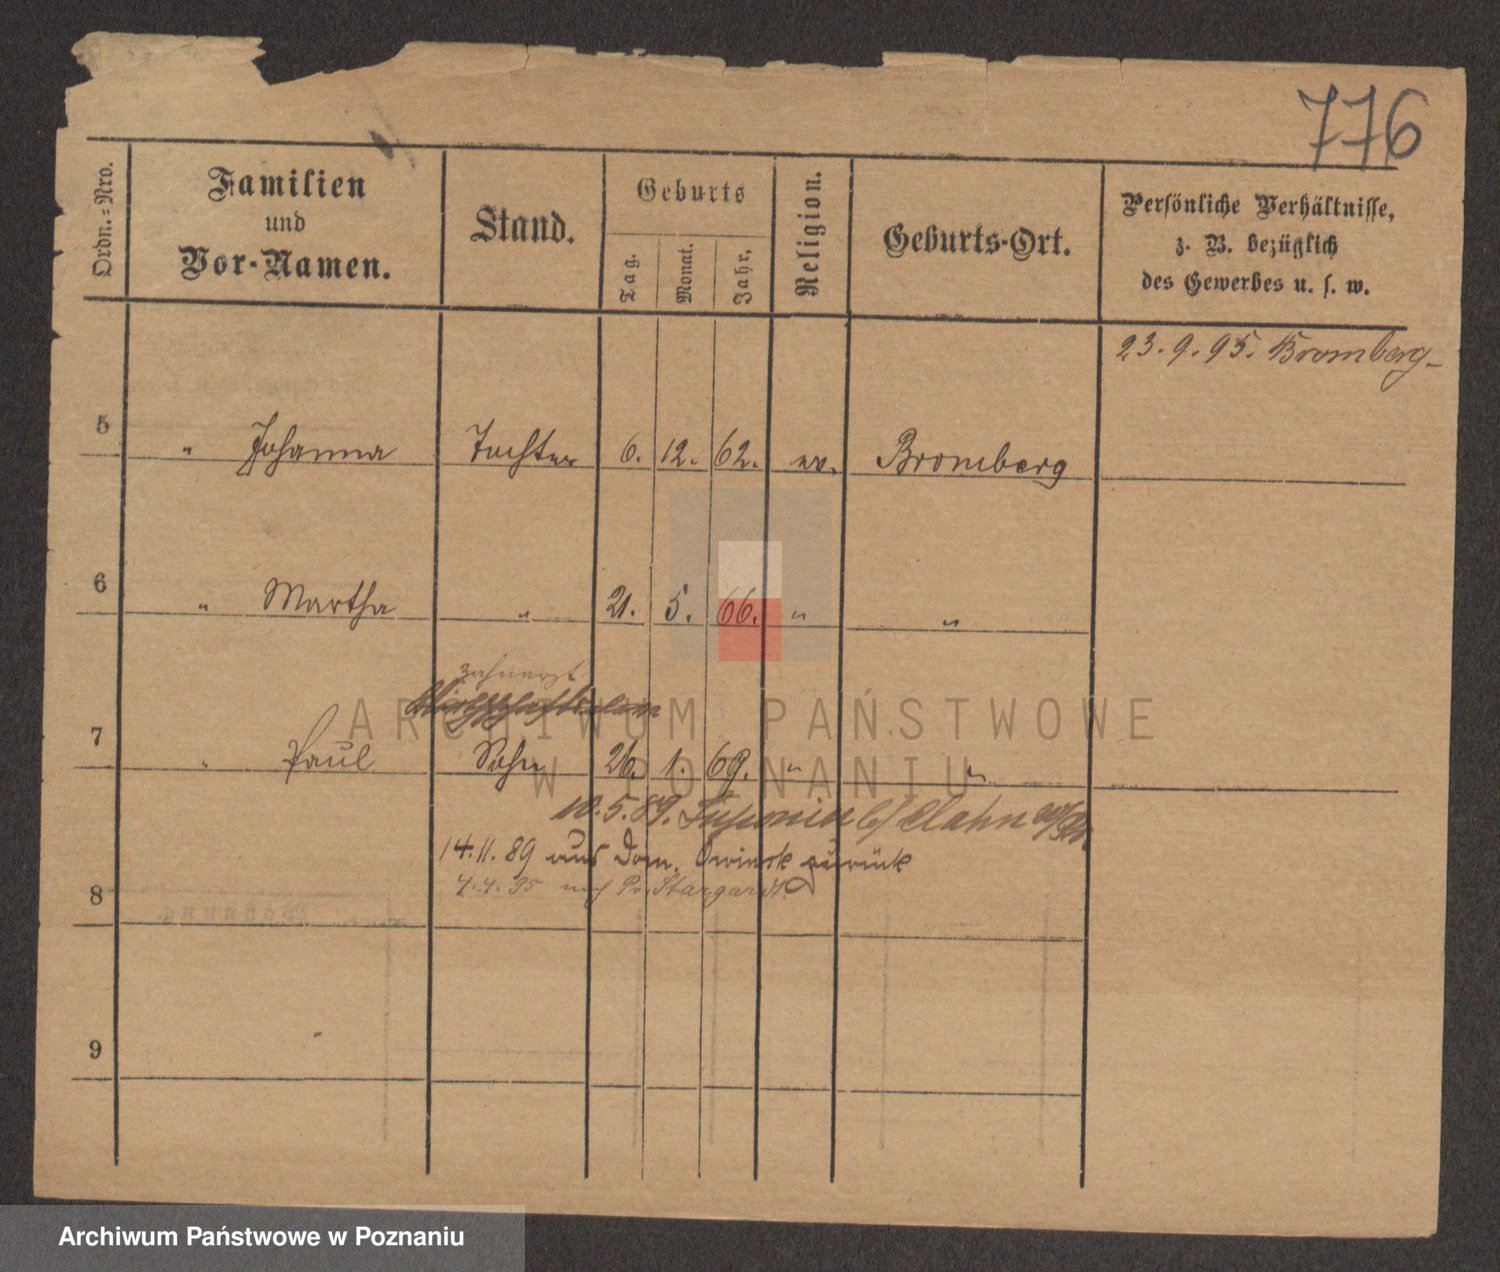 776
Ordn.=Nro.
Familien
und
Vor-Namen.
Stand.
Geburts
Tag.
Monat.
Jahr.
Religion.
Geburts-Ort.
Persönliche Verhältnisse,
z. B. bezüglich
des Gewerbes u. s. w.
23. 9. 95. Bromberg
5 " Johanna Tochter 6. 12. 62. ev. Bromberg
6 " Martha " 21. 5. 66. " "
Zahnarzt
7 " Paul Sohn 26. 1. 69. " "
10. 5. 89.
14. 11. 89 aus Dom. Owinsk zurück
8 4. 4. 95 nach Pr. Stargardt
9
ARCHIWUM PAŃSTWOWE
W POZNANIU
Archiwum Państwowe w Poznaniu